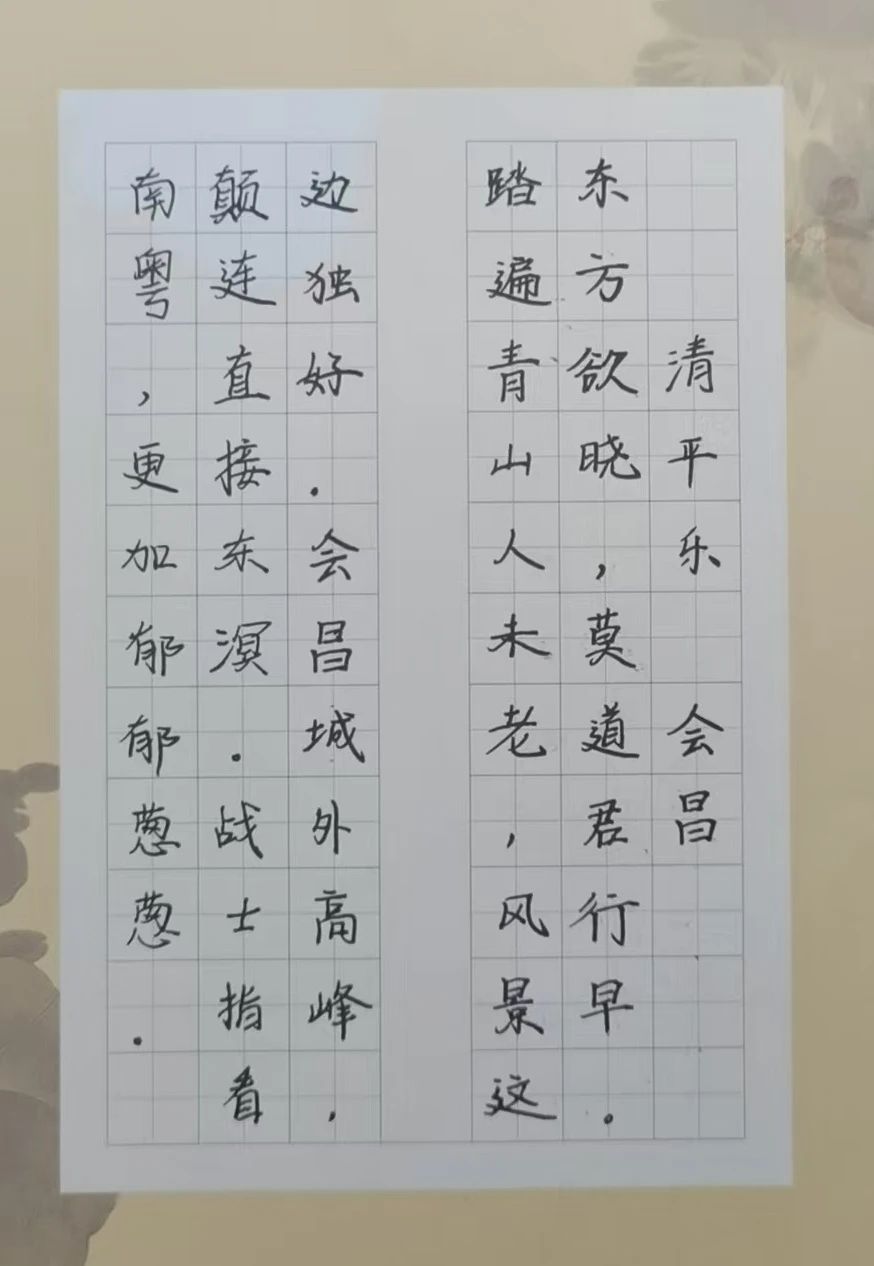 清平乐 会昌
东方欲晓，莫道君行早。
踏遍青山人未老，风景这
边独好.会昌城外高峰，
颠连直接东溟.战士指看
南粤，更加郁郁葱葱.